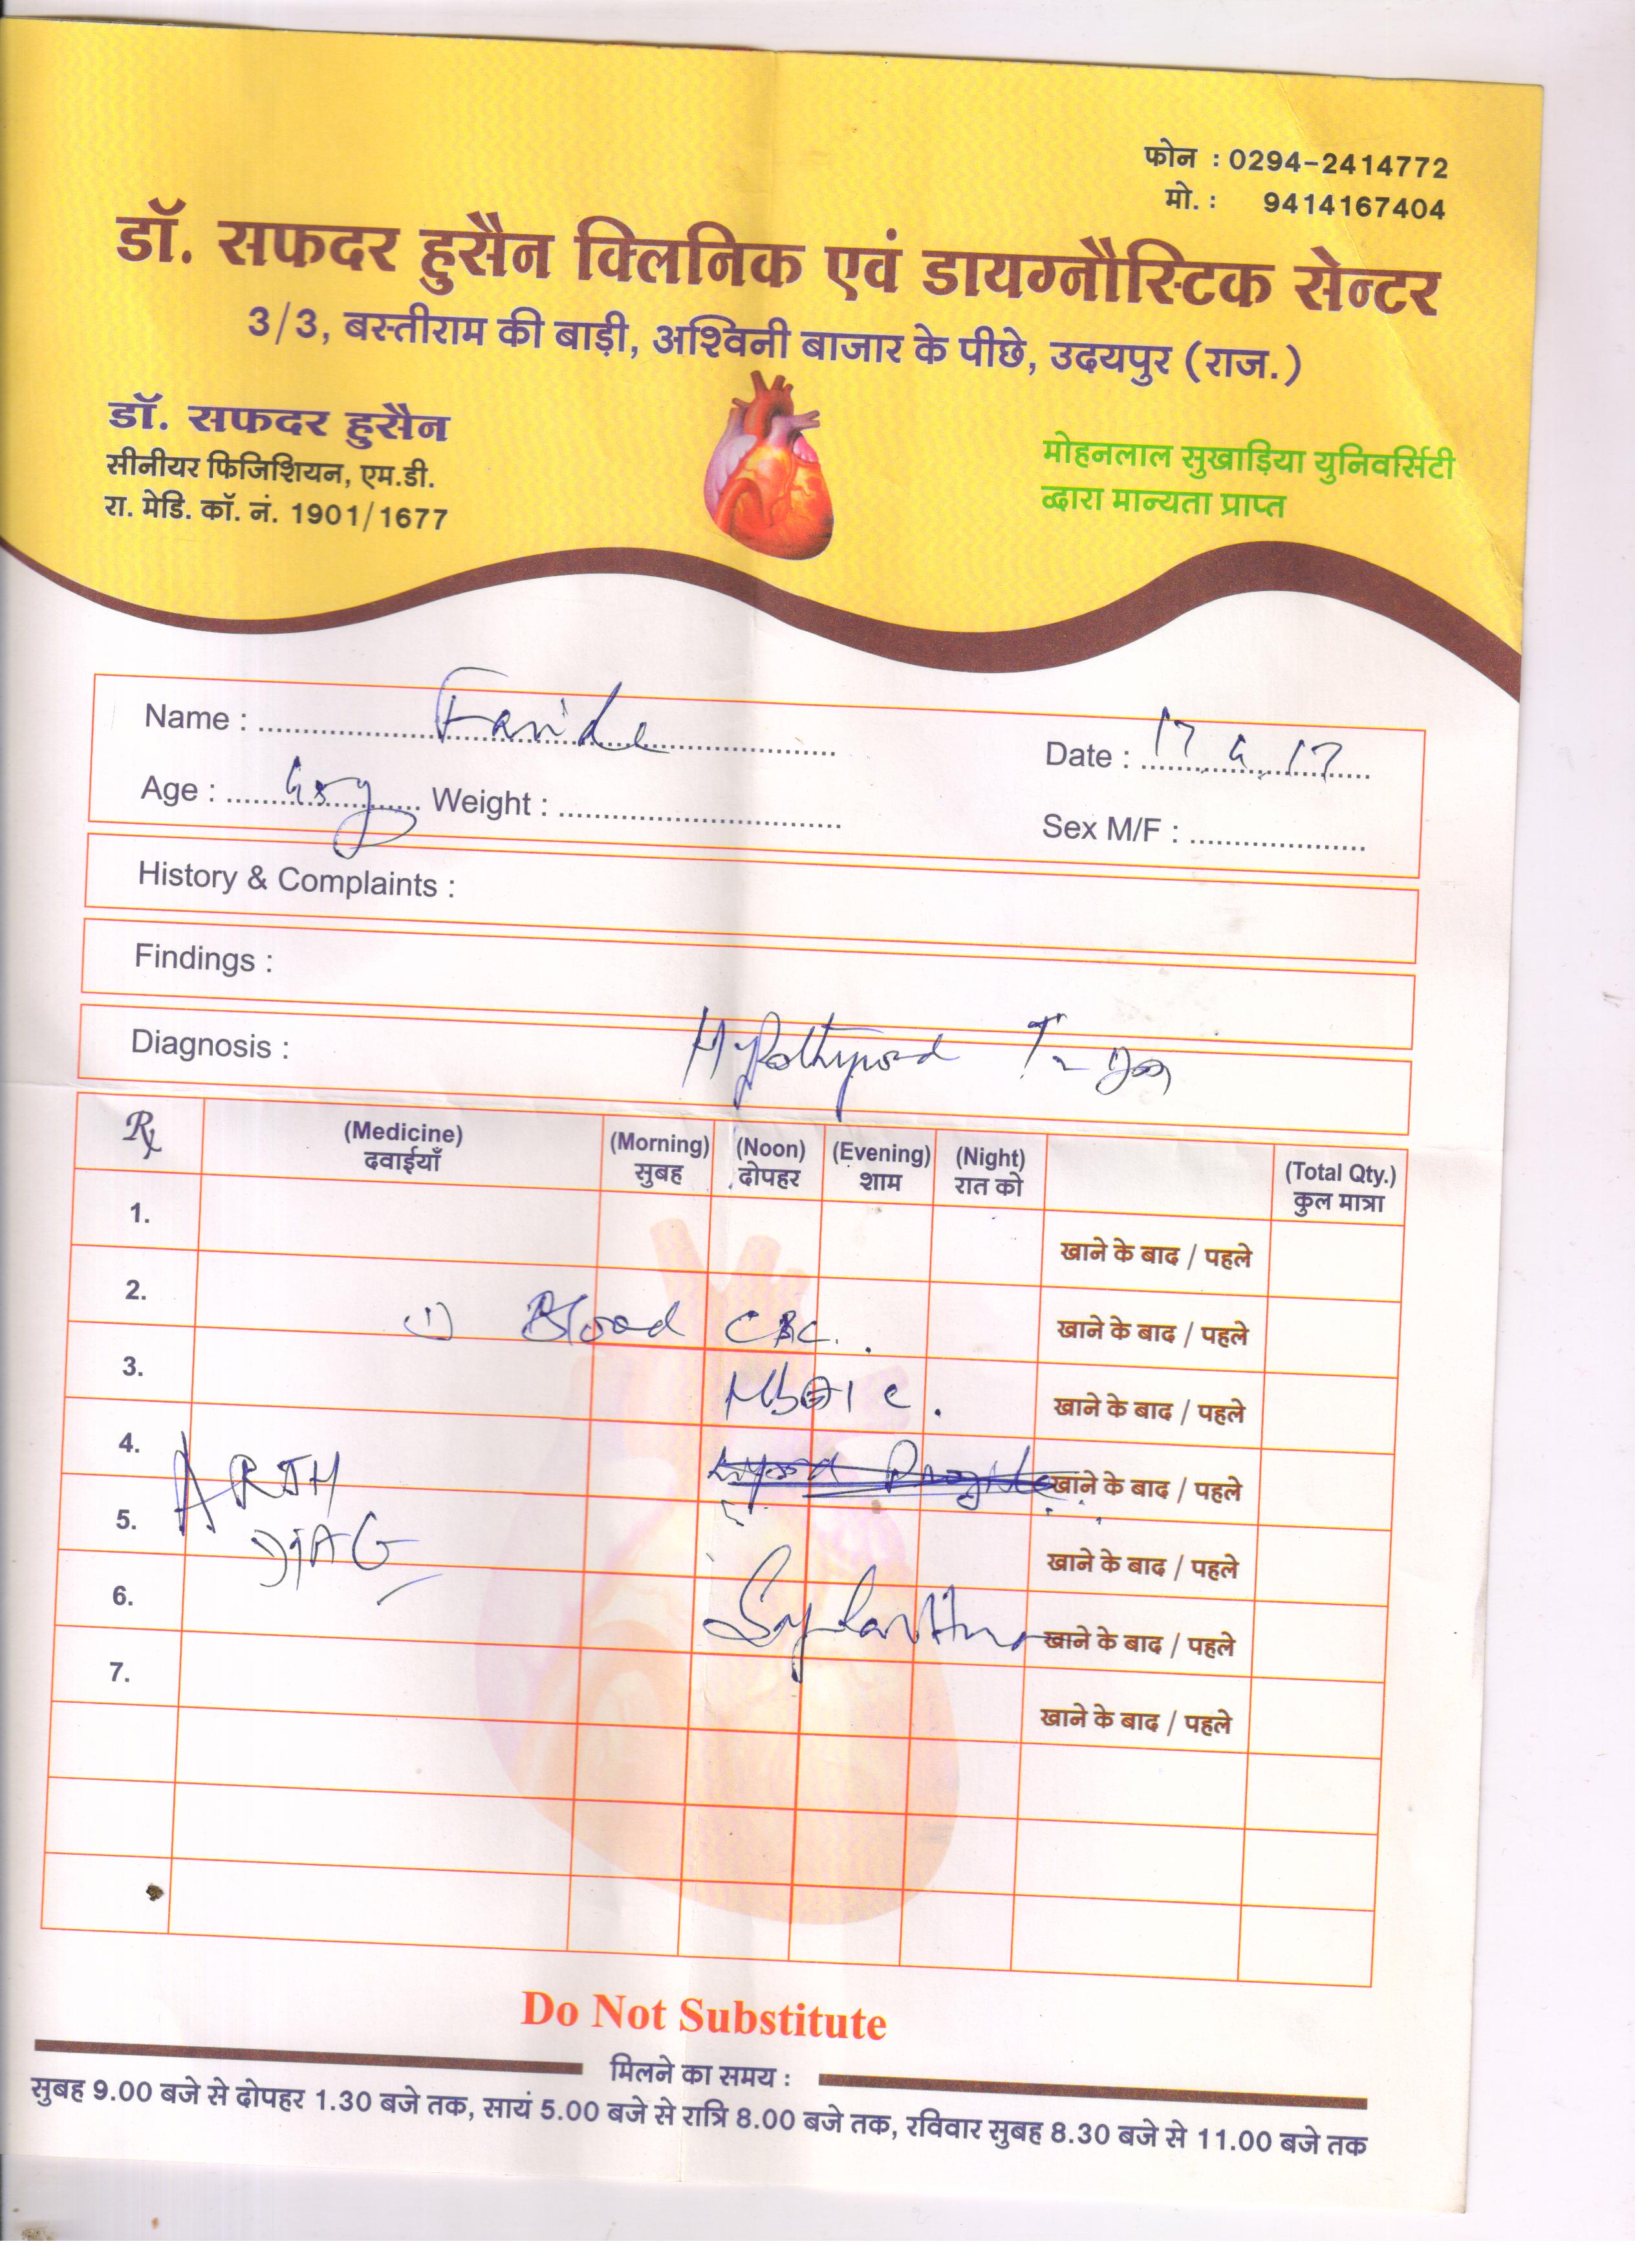 फोन : 0294-2414772
मो. : 9414167404
डॉ. सफदर हुसैन क्लिनिक एवं डायग्नौस्टिक सेन्टर
3/3, बस्तीराम की बाड़ी, अश्विनी बाजार के पीछे, उदयपुर (राज.)
डॉ. सफदर हुसैन
सीनीयर फिजिशियन, एम.डी.
रा. मेडि. कॉ. नं. 1901/1677
मोहनलाल सुखाड़िया युनिवर्सिटी
द्वारा मान्यता प्राप्त
Name : Farida
Date : 17
Age : Weight :
Sex M/F :
History & Complaints :
Findings :
Diagnosis : Hypothyroid
Rx (Medicine) (Morning) (Noon) (Evening) (Night) (Total Qty.)
दवाईयाँ सुबह दोपहर शाम रात को कुल मात्रा
1. खाने के बाद / पहले
2. (1) Blood CBC. खाने के बाद / पहले
3. HbA1c. खाने के बाद / पहले
4. ARTH खाने के बाद / पहले
5. DIAG खाने के बाद / पहले
6. खाने के बाद / पहले
7. खाने के बाद / पहले
Do Not Substitute
मिलने का समय :
सुबह 9.00 बजे से दोपहर 1.30 बजे तक, सायं 5.00 बजे से रात्रि 8.00 बजे तक, रविवार सुबह 8.30 बजे से 11.00 बजे तक